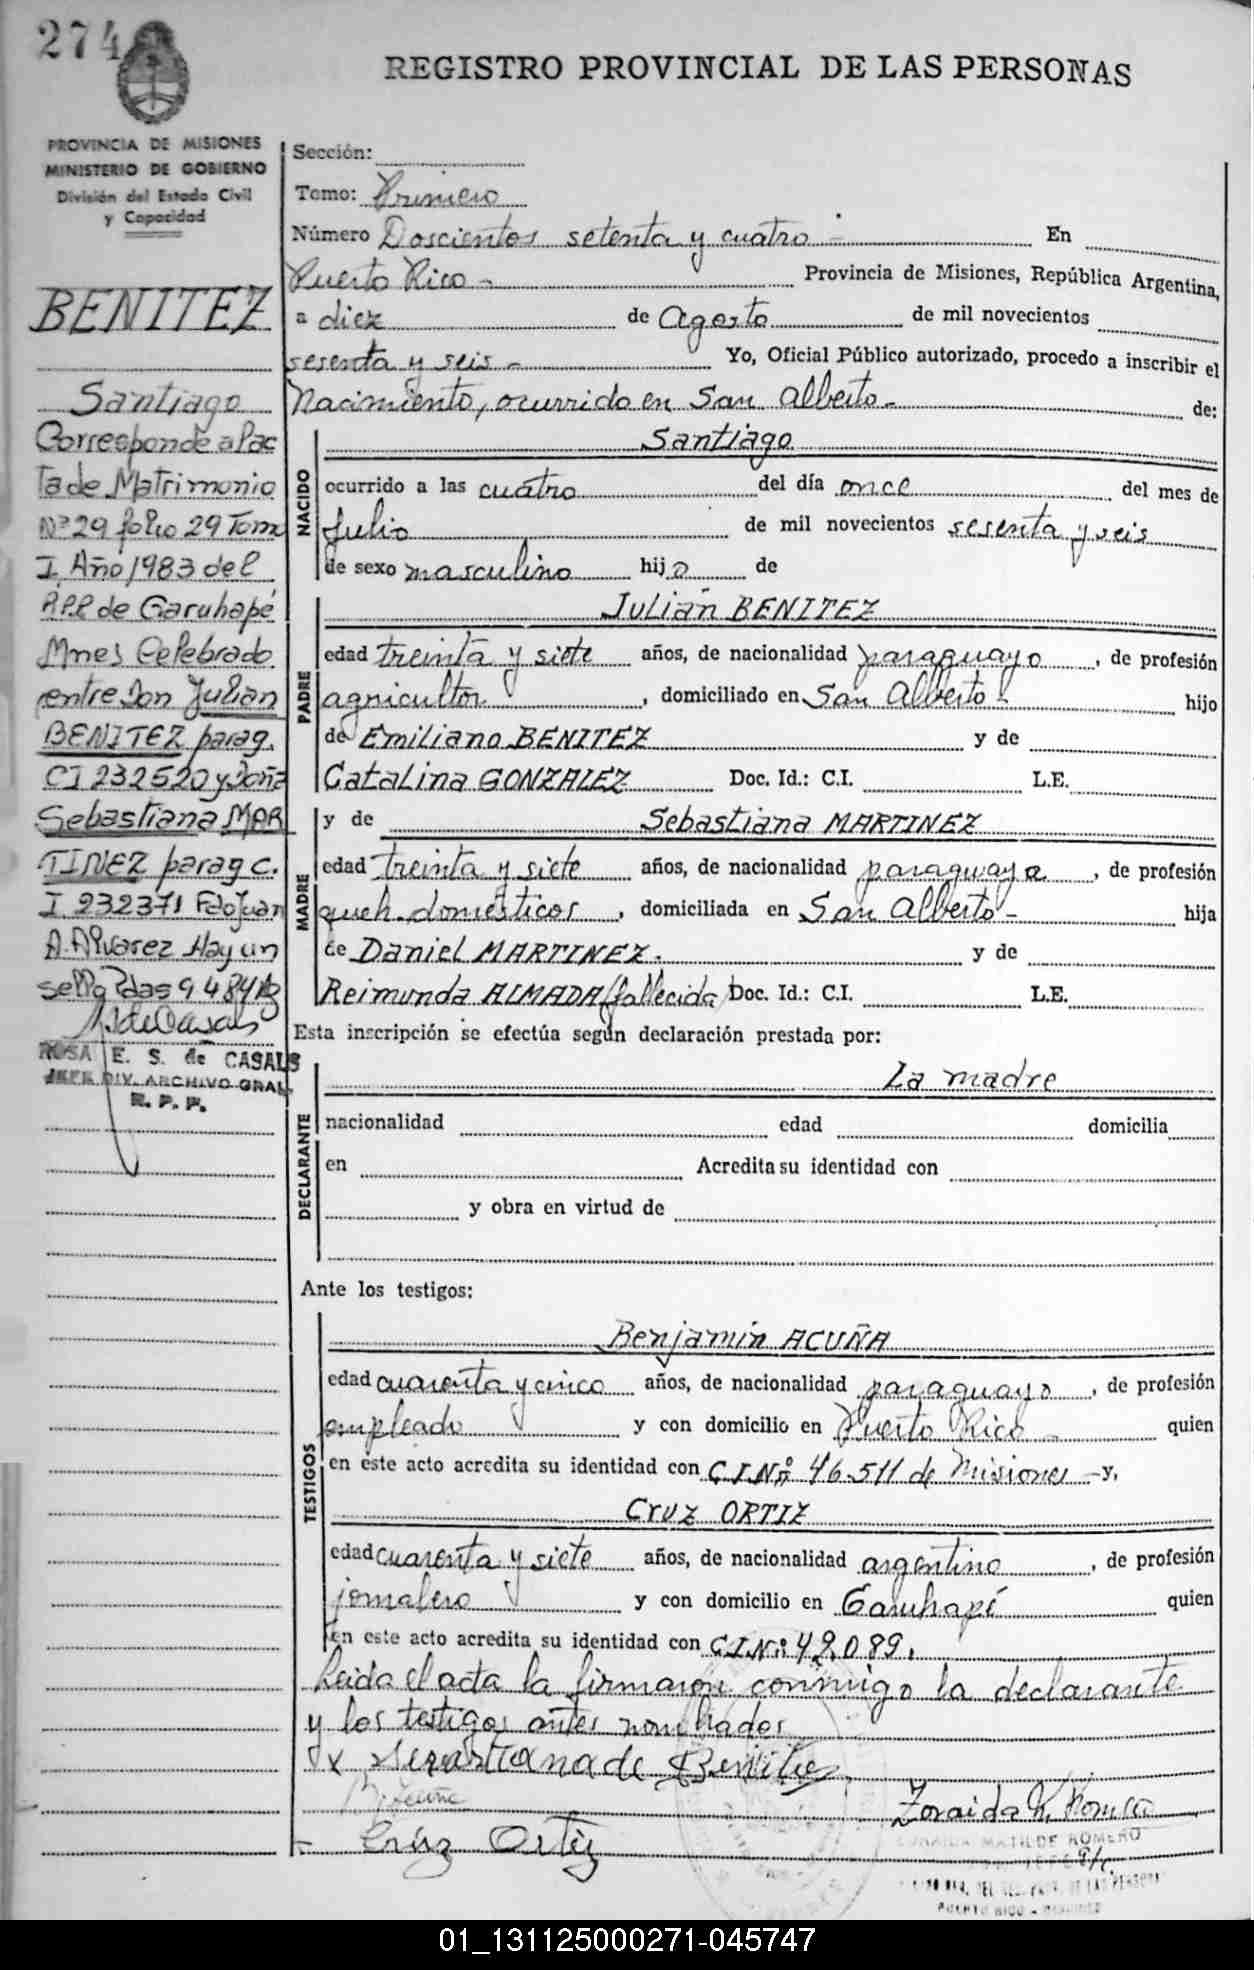 274
REGISTRO PROVINCIAL DE LAS PERSONAS
PROVINCIA DE MISIONES
MINISTERIO DE GOBIERNO
División del Estado Civil
y Capacidad
BENITEZ
Santiago
Corresponde al'ac
ta de Matrimonio
Nº 29 folio 29 Tomo
I. Año 1983 del
R.P.P. de Garuhapé
Mnes Celebrado
entre Don Julian
BENITEZ parag.
CI 232520 y Doña
Sebastiana MAR
TINEZ parag C.
I 232371 Fdo Juan
A. Alvarez Hay un
sello Pdas 9 4 84
ROSA E. S. de CASALS
JEFE DIV. ARCHIVO GRAL
R. P. P.
Sección:
Tomo: Primero
Número Doscientos setenta y cuatro - En
Puerto Rico - Provincia de Misiones, República Argentina,
a diez de Agosto de mil novecientos
sesenta y seis - Yo, Oficial Público autorizado, procedo a inscribir el
Nacimiento, ocurrido en San Alberto - de:
NACIDO
Santiago
ocurrido a las cuatro del día once del mes de
Julio de mil novecientos sesenta y seis
de sexo masculino hijo de
PADRE
Julián BENITEZ
edad treinta y siete años, de nacionalidad paraguayo, de profesión
agricultor, domiciliado en San Alberto - hijo
de Emiliano BENITEZ y de
Catalina GONZALEZ Doc. Id.: C.I. L.E.
MADRE
y de Sebastiana MARTINEZ
edad treinta y siete años, de nacionalidad paraguaya, de profesión
queh. domésticos, domiciliada en San Alberto - hija
de Daniel MARTINEZ. y de
Reimunda ALMADA (fallecida) Doc. Id.: C.I. L.E.
Esta inscripción se efectúa según declaración prestada por:
DECLARANTE
La madre
nacionalidad edad domicilia
en Acredita su identidad con
y obra en virtud de
Ante los testigos:
TESTIGOS
Benjamín ACUÑA
edad cuarenta y cinco años, de nacionalidad paraguayo, de profesión
empleado y con domicilio en Puerto Rico - quien
en este acto acredita su identidad con C.I.Nº 46.511 de Misiones - y,
Cruz ORTIZ
edad cuarenta y siete años, de nacionalidad argentino, de profesión
jornalero y con domicilio en Garuhapé quien
en este acto acredita su identidad con C.I.Nº 49.089.
Leida el acta la firmaron conmigo la declarante
y los testigos antes nombrados
x Sevastiana de Benitez
B. Acuña
Cruz Ortiz
ZORAIDA MATILDE ROMERO
PUERTO RICO - MISIONES
01_131125000271-045747